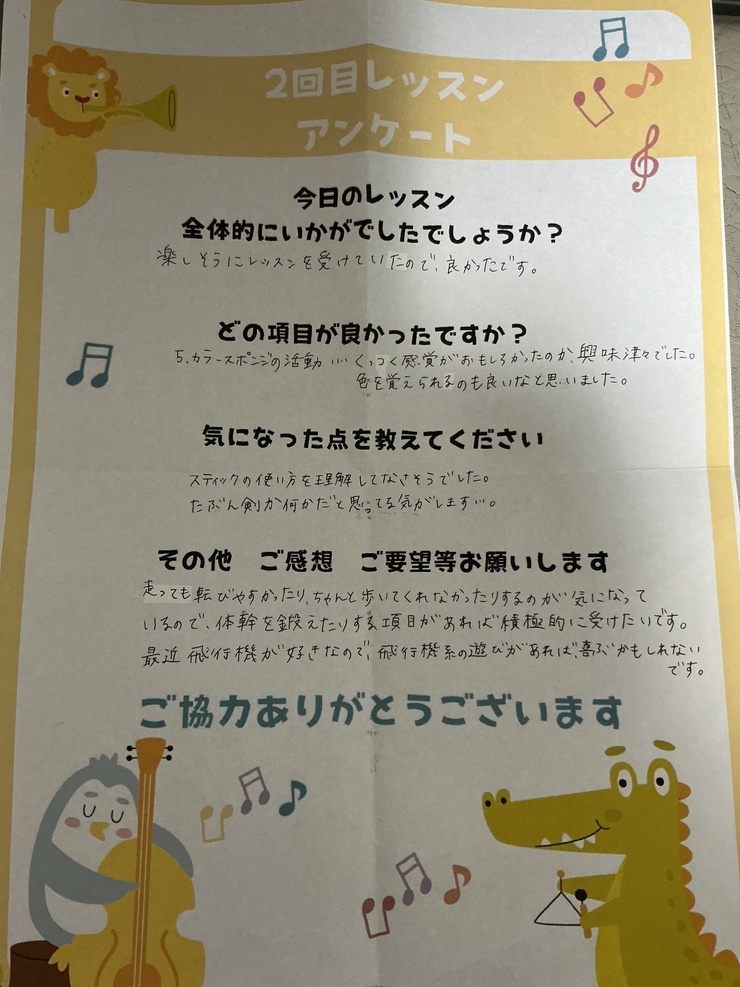 2回目レッスン
アンケート
今日のレッスン
全体的にいかがでしたでしょうか？
楽しそうにレッスンを受けていたので、良かったです。
どの項目が良かったですか？
5.カラースポンジの活動…くっつく感覚がおもしろかったのか、興味津々でした。
色を覚えられるのも良いなと思いました。
気になった点を教えてください
スティックの使い方を理解してなさそうでした。
たぶん剣か何かだと思ってる気がします…。
その他　ご感想　ご要望等お願いします
走っても転びやすかったり、ちゃんと歩いてくれなかったりするのが気になって
いるので、体幹を鍛えたりする項目があれば積極的に受けたいです。
最近飛行機が好きなので、飛行機系の遊びがあれば喜ぶかもしれない
です。
ご協力ありがとうございます